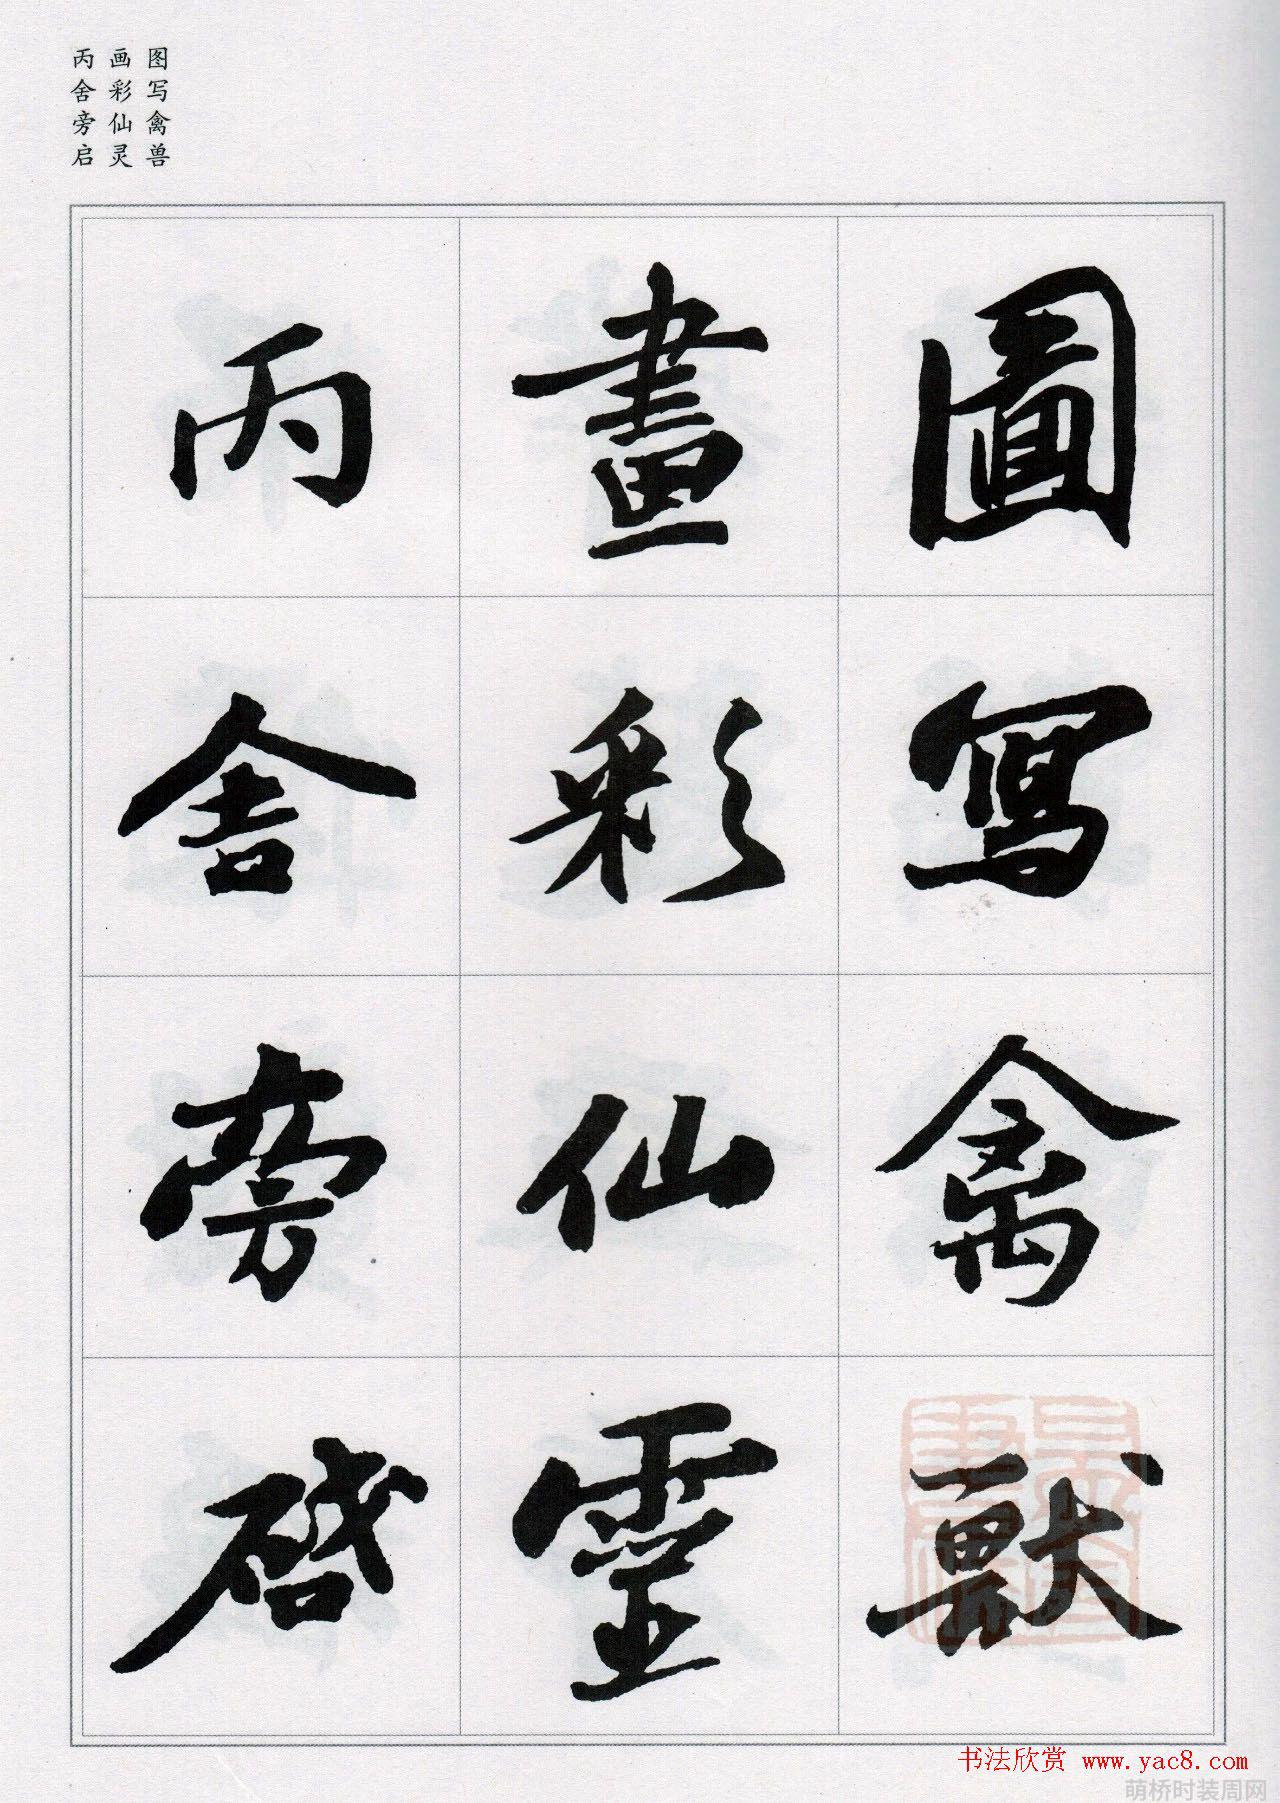 图写禽兽
画彩仙灵
丙舍旁启
圖寫禽獸
畫彩仙靈
丙舍旁啓
书法欣赏 www.yac8.com
萌桥时装周网